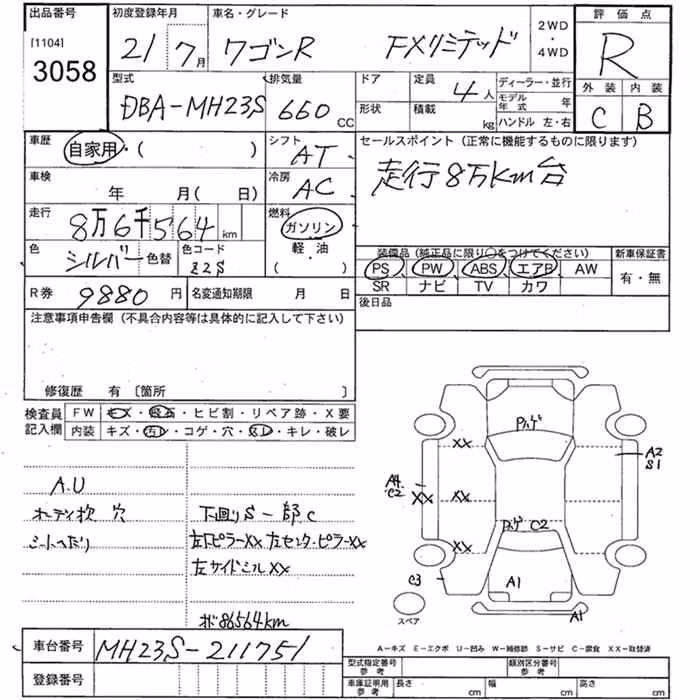 出品番号 初度登録年月 車名・グレード 2WD ・ 4WD 評価点
[1104]
3058 21 7月 ワゴンR FXリミテッド R
型式 排気量 ドア 定員 4人 ディーラー・並行 外装 内装
DBA-MH23S 660 CC 形状 積載 kg モデル年式 年 C B
ハンドル 左・右
車歴 自家用・( ) シフト AT セールスポイント (正常に機能するものに限ります)
車検 年 月( 日) 冷房 AC 走行8万Km台
走行 8万6千564 km 燃料 ガソリン
色 シルバー 色替 色コード Z2S 軽・油 ( ) 装備品(純正品に限り○をつけてください) 新車保証書
PS PW ABS エアB AW 有・無
SR ナビ TV カワ
R券 9880円 名変通知期限 月 日 後日品
注意事項申告欄 (不具合内容等は具体的に記入して下さい)
修復歴 有 〔箇所 〕
検査員 FW キズ・飛石・ヒビ割・リペア跡・X要
記入欄 内装 キズ・汚レ・コゲ・穴・スレ・キレ・破レ
A.U
オーディ欠 穴 下廻りS一部C
シートへたり 左Fピラーxx 左センターピラーxx
左サイドシルxx
ボ86564km
XX
A2
S1
A4
C2
XX
XX
XX
C2
C3
A1
スペア
A1
A-キズ E-エクボ U-凹み W-補修跡 S-サビ C-腐食 XX-取替済
車台番号 MH23S-211751
登録番号
型式指定番号 参考 類別区分番号 参考
車庫証明用 参考 長さ cm 幅 cm 高さ cm